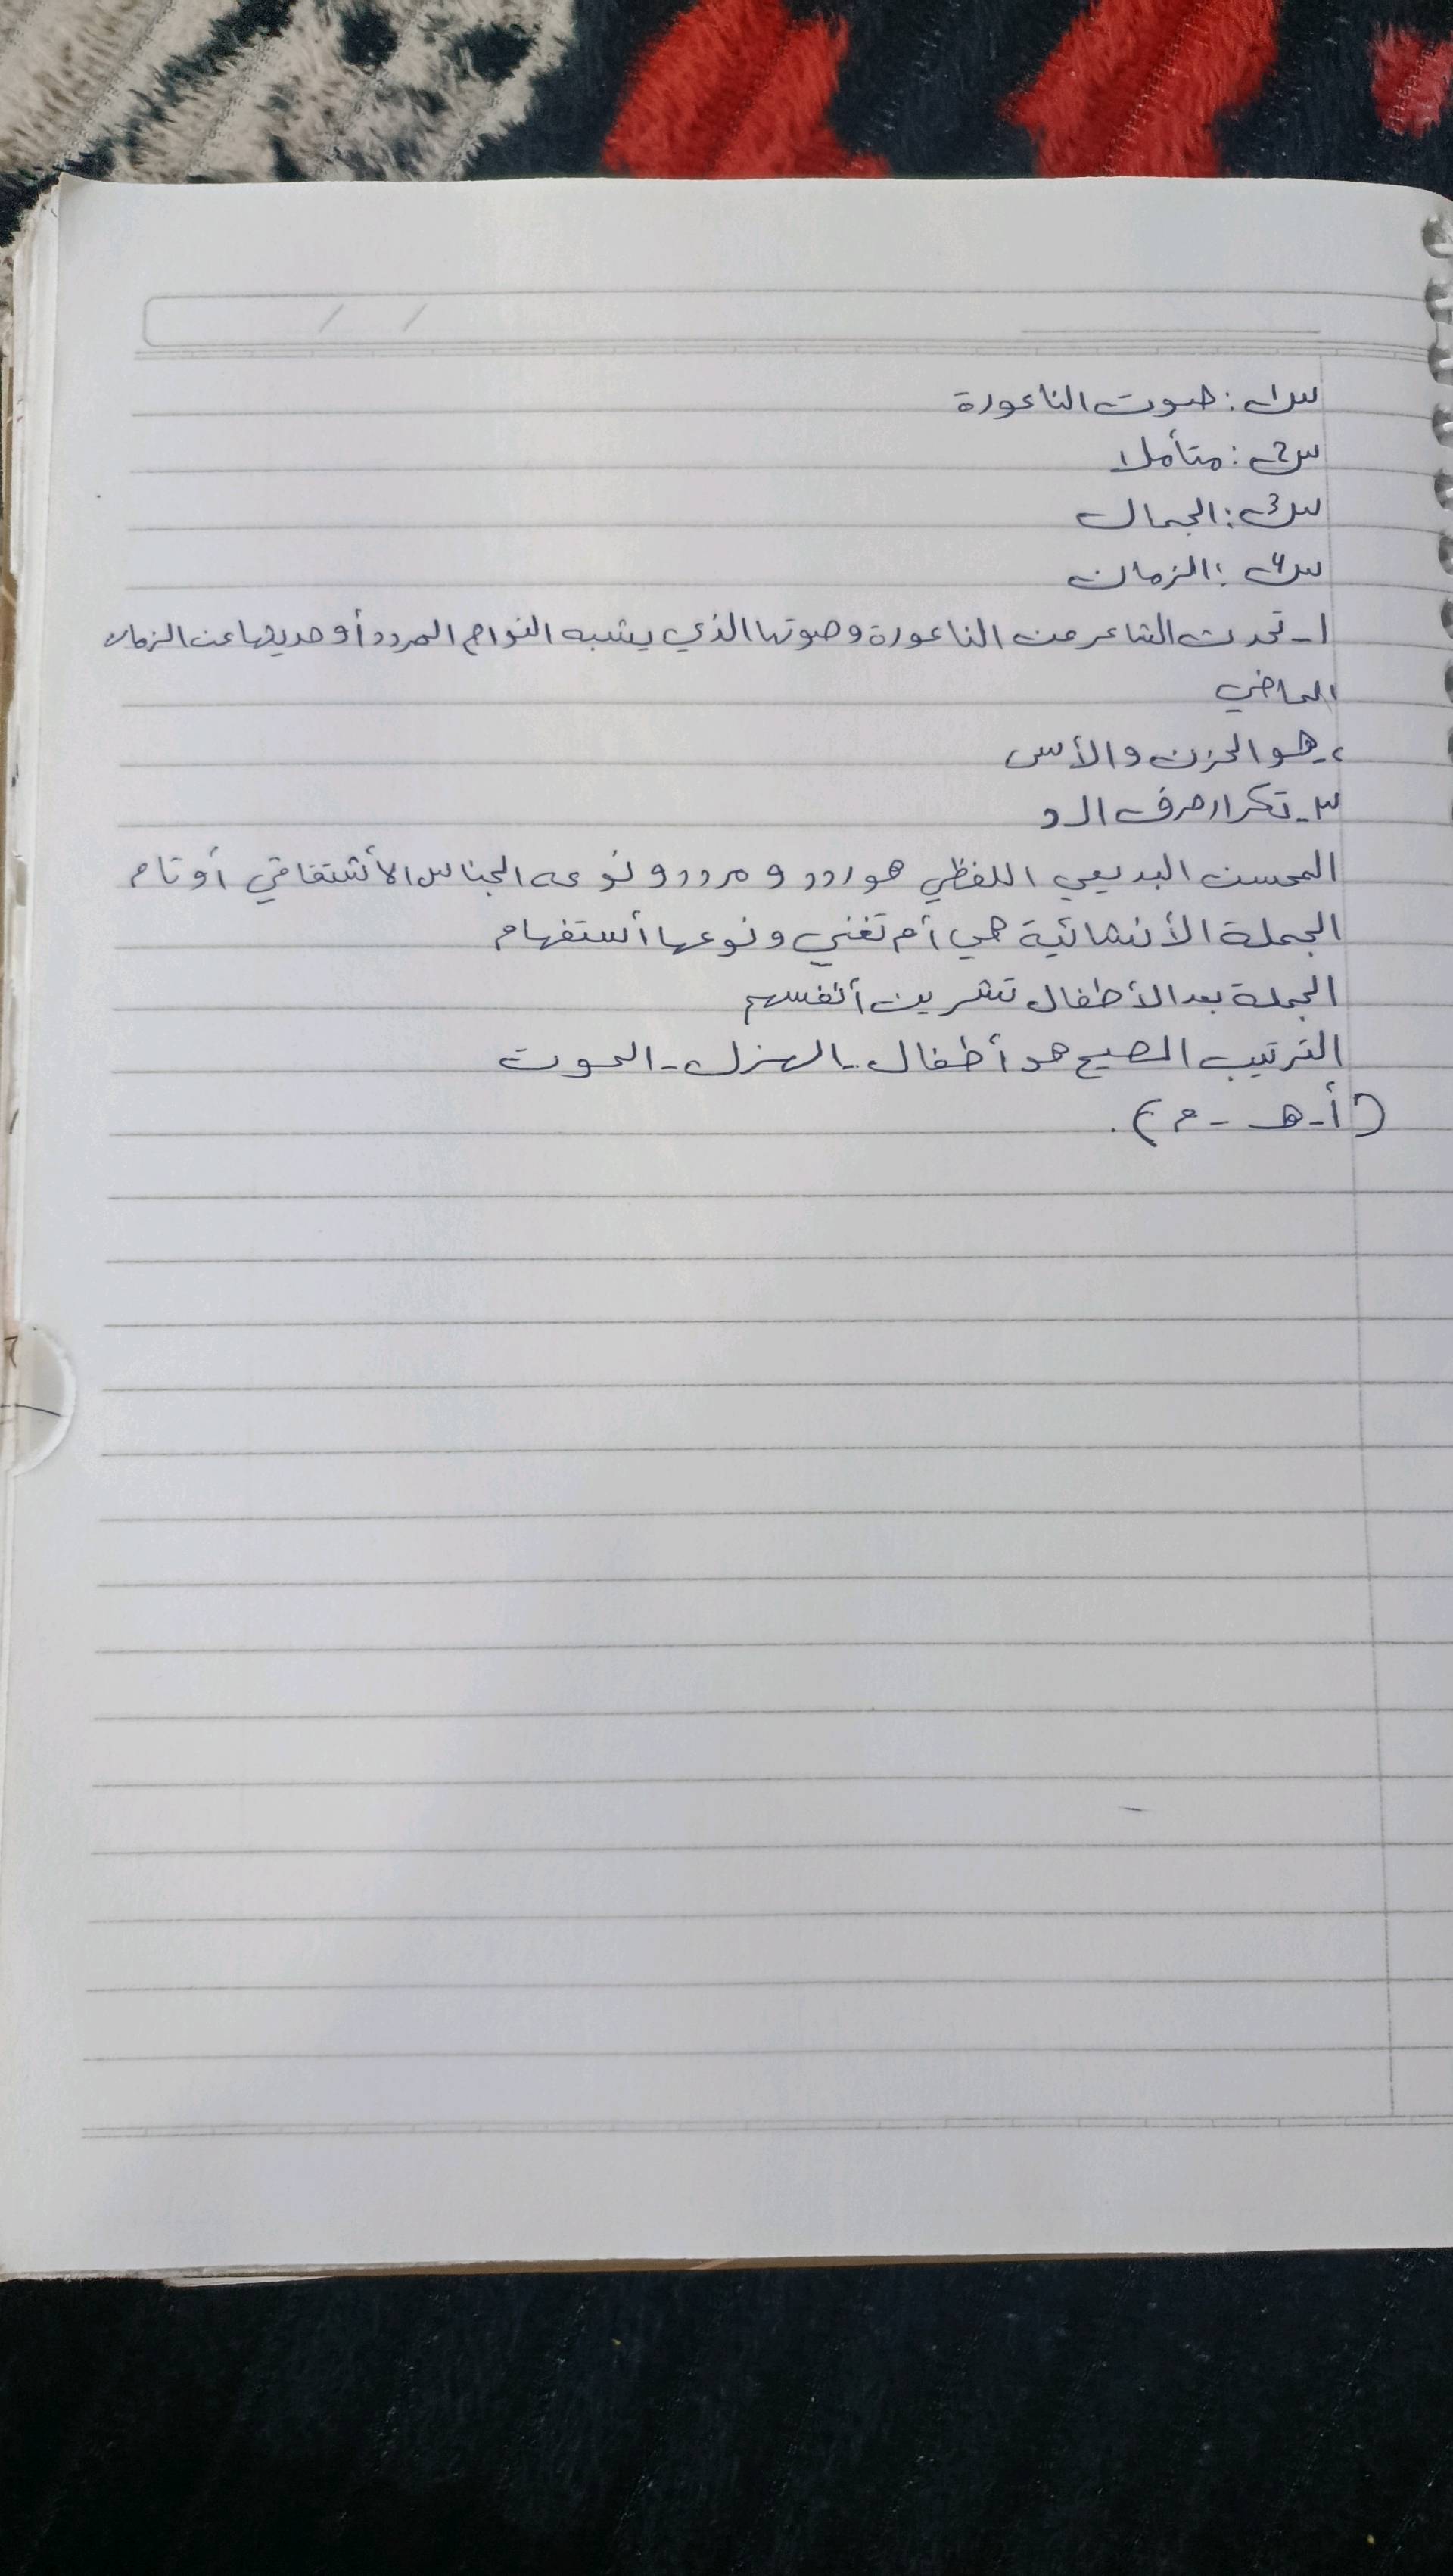 س1: صوت الناعورة
س2: متأملا
س3: الجمال
س4: الزمان
١- تحدث الشاعر عن الناعورة وصوتها الذي يشبه النواح المردد أو حديثها عن الزمان
الماضي
٢- هو الحزن والأسى
٣- تكرار حرف الـ د
المحسن البديعي اللفظي هو ردد و مردد و نوعه الجناس الأشتقاقي أو تام
الجملة الأنشائية هي أم تغني و نوعها أستفهام
الجملة بعد الأطفال تشرين أنفسهم
الترتيب الصيح هو أطفال - الهزل - الموت
(أ - هـ - م).